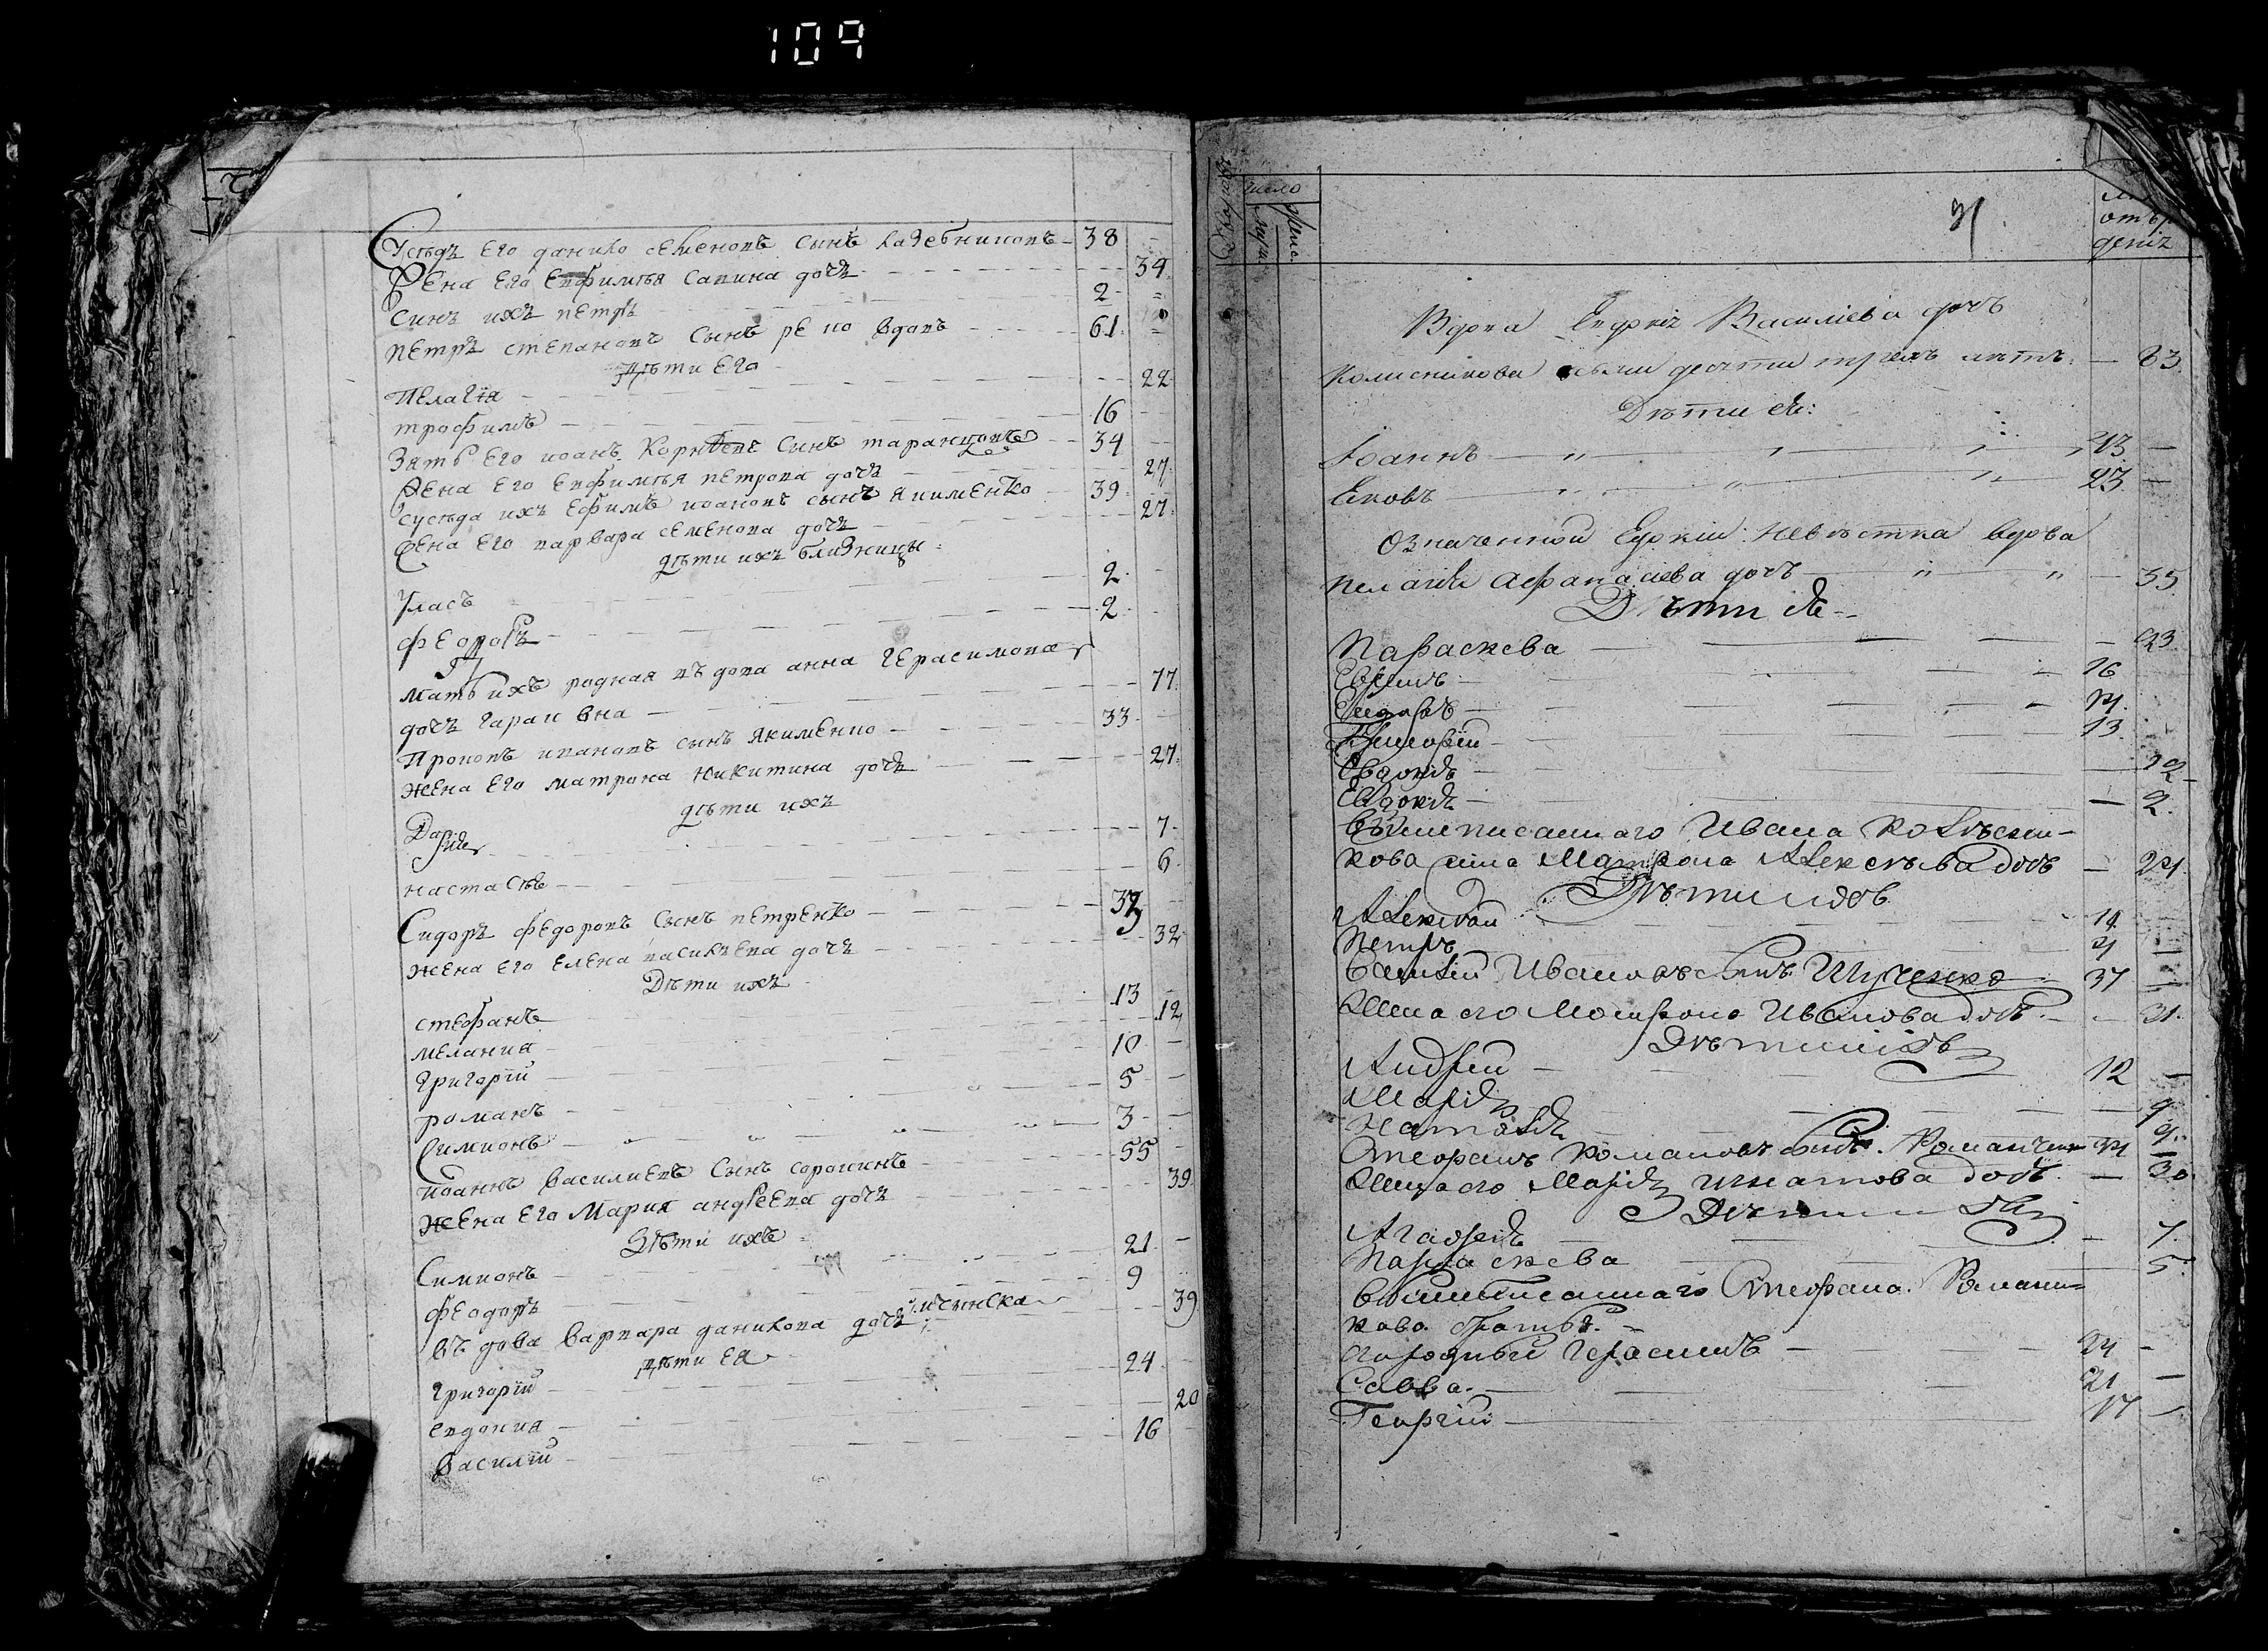 109
Сусѣдъ его данило семеновъ сынъ Калебниковъ 38
Жена его Евфимѣя Савина дочъ 34
Синъ ихъ петръ 2
петръ степановъ сынъ вдовъ 61
Дѣти его
Пелагія 22
трофимъ 16
Зять его иоанъ Корнѣевъ сынъ таранцовъ 34
Жена его Евфимѣя петрова дочъ 27
Сусѣда ихъ Ефимъ иоановъ сынъ Якименко 39
Жена его варвара семенова дочъ 27
дѣти ихъ близницы
Уласъ 2
Феодоръ 2
мать ихъ родная въдова анна Герасимова
дочъ 77
Прокопъ ивановъ сынъ Якименко 33
жена его матрона никитина дочъ 27
дѣти ихъ
Дарія 7
настасѣе 6
Сидоръ Федоровъ сынъ петренко 39
жена его елена васильева дочъ 32
Дѣти ихъ
стефанъ 13
мелания 12
Григорій 10
романъ 5
Симионъ 3
иоаннъ василиевъ сынъ сорокинъ 55
жена его Мария андреева дочъ 39
Дѣти ихъ
Симионъ 21
Феодоръ 9
въдова варвара данилова дочъ 39
дѣти ея
Григорій 24
евдокия 20
василій 16
число
31
Вдова Васильева дочъ
Колисникова осьми десяти трехъ лѣтъ 83
Дѣти еѣ:
Іоаннъ 43
Яковъ 23
Означенной невѣстка вдова
Пелагія Афанасиева дочъ 35
Дѣти еѣ
Параскева 23
Ефимъ 16
Феодоръ 14
Григорій 13
Евдокія 12
Евдокія 2
Вышеписаннаго Ивана Колѣсни-
кова жена Матрона Алексѣева дочъ 24
Дѣти ихъ
Алексѣй 14
Петръ 4
Василій Ивановъ сынъ Шученко 37
Жена его Матрона Иванова дочъ 31
Дѣти ихъ
Андрей 12
Марія 9
Наталія 9
Стефанъ Романовъ сынъ Романченко 34
Жена его Марія Игнатова дочъ 30
Дѣти ихъ
Агафія 7
Параскева 5
Вышеписаннаго Стефана Романи-
кова братья
его родный Герасимъ 24
Савва 21
Георгій 17